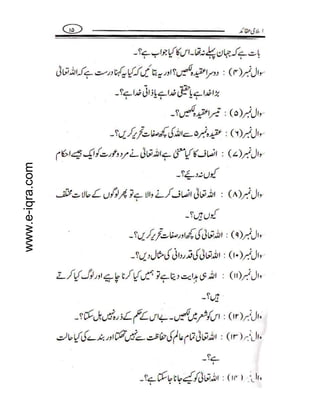 اسلامی عقائد
۱۵
بات ہے کہ جہان پہلے نہ تھا۔ اس کا کیا جواب ہے؟۔
سوال نمبر (۴) : دوسرا عقیدہ لکھیں؟ اور یہ بتائیں کہ کیا یہ کہنا درست ہے کہ اللہ تعالیٰ
بڑا خدا ہے یا حقیقی خدا ہے یا ذاتی خدا ہے؟۔
سوال نمبر (۵) : تیسرا عقیدہ لکھیں؟۔
سوال نمبر (۶) : عقیدہ نمبر ۵ سے اللہ کی کچھ صفات تحریر کریں؟۔
سوال نمبر (۷) : انصاف کا کیا معنیٰ ہے اللہ تعالیٰ نے مرد و عورت کو ایک جیسے احکام
کیوں نہ دیئے؟۔
سوال نمبر (۸) : اللہ تعالیٰ انصاف کرنے والا ہے تو پھر لوگوں کے حالات مختلف
کیوں ہیں؟۔
سوال نمبر (۹) : اللہ تعالیٰ کی کچھ اور صفات تحریر کریں؟۔
سوال نمبر (۱۰) : اللہ تعالیٰ کی قدردانی کی مثال دیں؟۔
سوال نمبر (۱۱) : اللہ ہی ہدایت دیتا ہے تو ہمیں کیا کرنا چاہیے اور لوگ کیا کرتے
ہیں؟۔
سوال نمبر (۱۲) : اس کو شعر میں لکھیں۔ بے اس کے حکم کے ذرہ نہیں ہل سکتا؟۔
سوال نمبر (۱۳) : اللہ تعالیٰ تمام عالم کی حفاظت سے نہیں تھکتا اور بندے کی کیا حالت
ہے؟۔
سوال نمبر (۱۴) : اللہ تعالیٰ کو کیسے جانا جا سکتا ہے؟۔
www.e-iqra.com